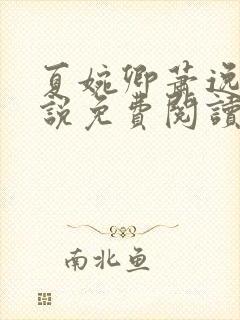 夏婉卿萧逸
說免費閱讀
南北鱼